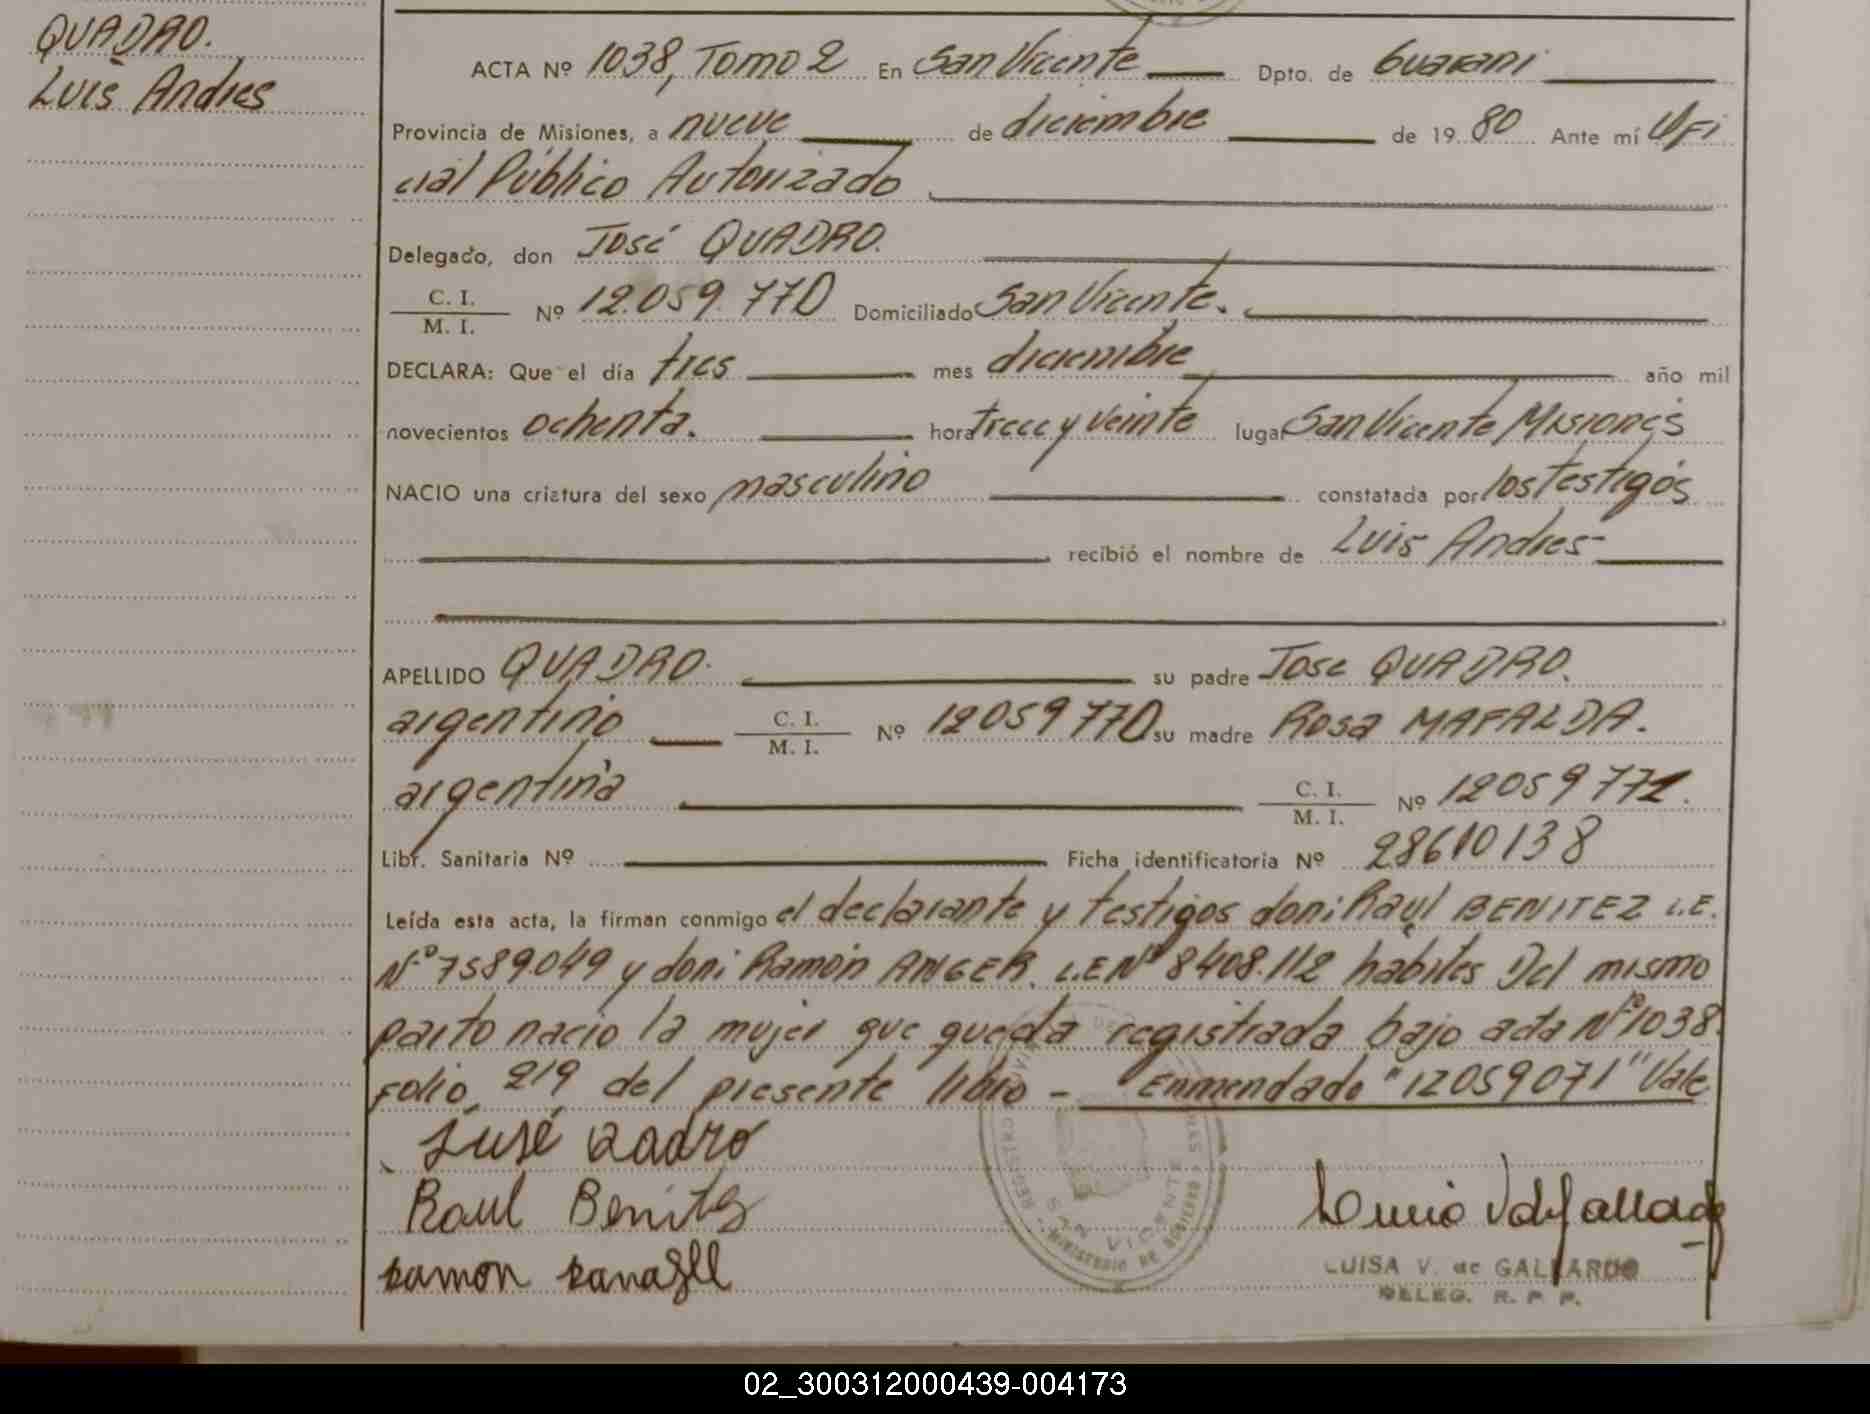 QUADRO.
Luis Andres
ACTA Nº 1038, Tomo 2 En San Vicente Dpto. de Guarani
Provincia de Misiones, a nueve de diciembre de 1980 Ante mí Ofi
cial Público Autorizado
Delegado, don José QUADRO.
C. I.
M. I. Nº 12.059.770 Domiciliado San Vicente.
DECLARA: Que el día tres mes diciembre año mil
novecientos ochenta. hora trece y veinte lugar San Vicente Misiones
NACIO una criatura del sexo masculino constatada por los testigos
recibió el nombre de Luis Andres
APELLIDO QUADRO. su padre Jose QUADRO.
argentino C. I. M. I. Nº 12059770 su madre Rosa MAFALDA.
argentina C. I. M. I. Nº 12059771.
Libr. Sanitaria Nº Ficha identificatoria Nº 28610138
Leída esta acta, la firman conmigo el declarante y testigos don: Raul BENITEZ L.E.
Nº 7589.049 y don: Ramón ANGER. L.E Nº 8408.112 habiles Del mismo
parto nacio la mujer que queda registrada bajo acta Nº 1038.
folio 219 del presente libro - Enmendado "12059071" Vale
José Quadro
Raul Benitez
Ramon
REGISTRO PROVINCIAL DE LAS PERSONAS
SAN VICENTE
MINISTERIO DE GOBIERNO
LUISA V. de GALLARDO
DELEG. R. P. P.
02_300312000439-004173